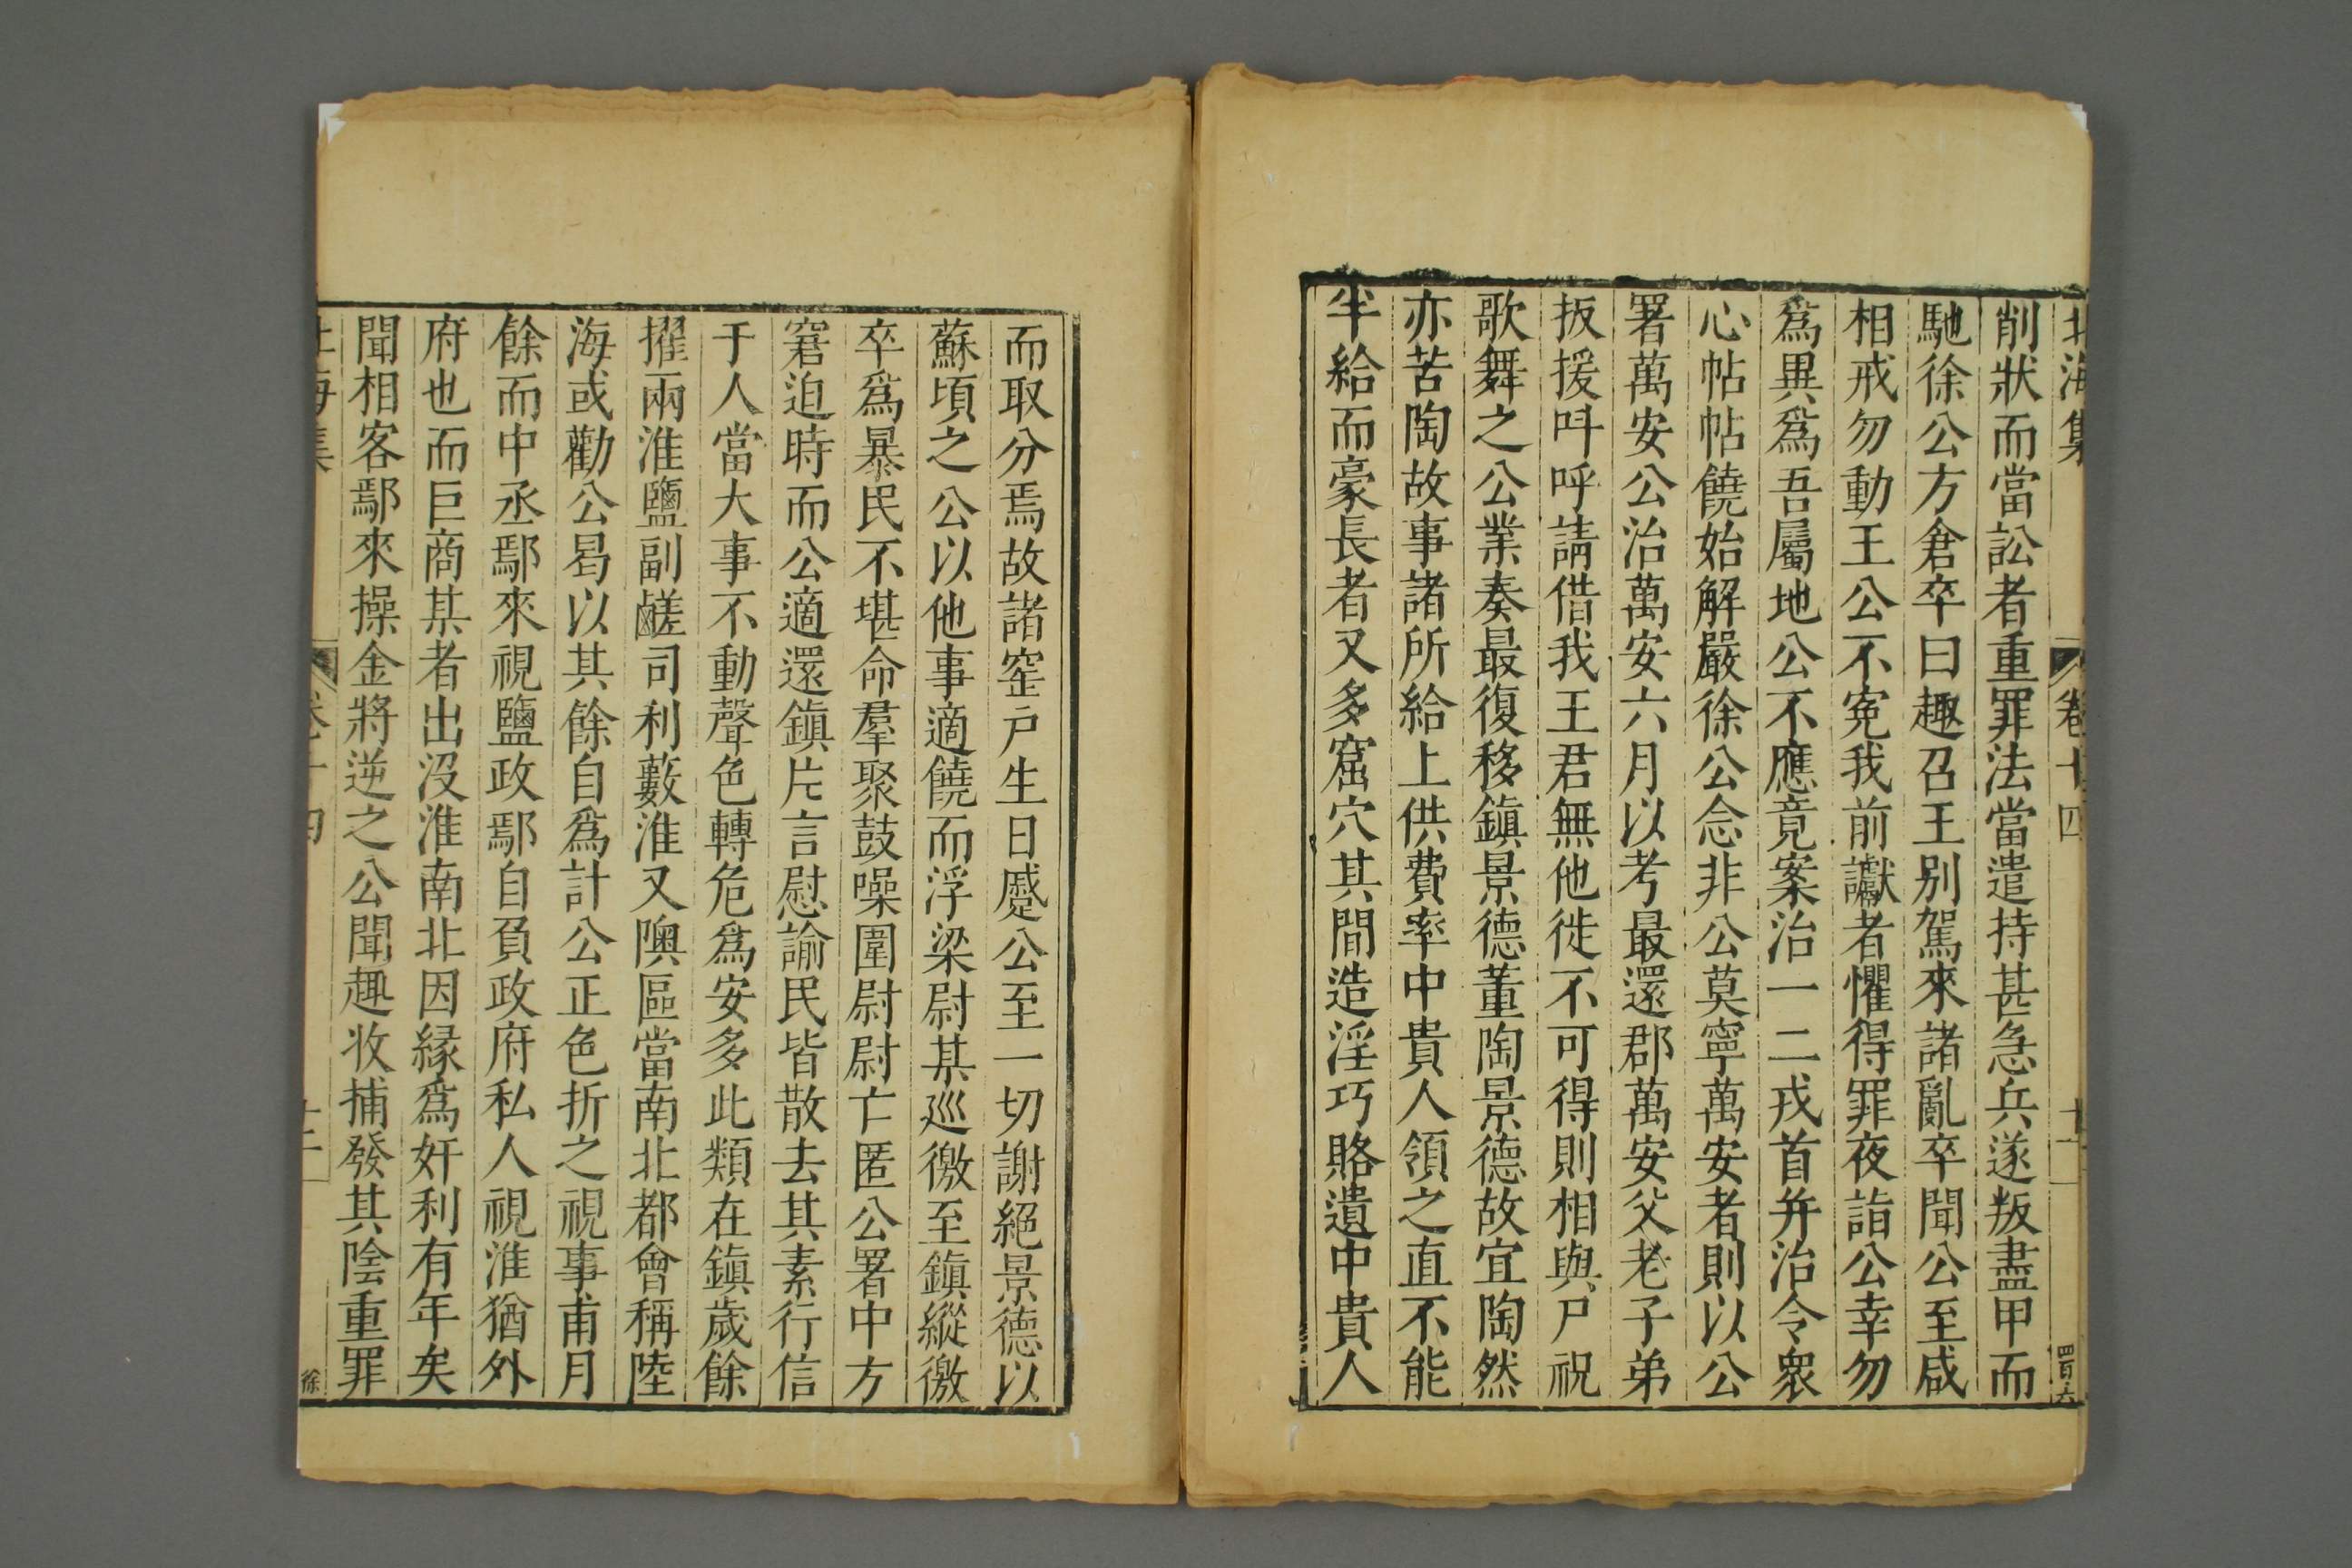 北海集 卷十四 十一 四百六
削狀而當訟者重罪法當遣持甚急兵遂叛盡甲而
馳徐公方倉卒曰趣召王别駕來諸亂卒聞公至咸
相戒勿動王公不寃我前讞者懼得罪夜詣公幸勿
爲異爲吾屬地公不應竟案治一二戎首并治令衆
心帖帖饒始解嚴徐公念非公莫寧萬安者則以公
署萬安公治萬安六月以考最還郡萬安父老子弟
扳援呌呼請借我王君無他徙不可得則相與尸祝
歌舞之公業奏最復移鎮景德董陶景德故宜陶然
亦苦陶故事諸所給上供費率中貴人領之直不能
半給而豪長者又多窟穴其間造淫巧賂遺中貴人
而取分焉故諸窑户生日蹙公至一切謝絕景德以
蘇頃之公以他事適饒而浮梁尉某巡徼至鎮縱徼
卒爲暴民不堪命羣聚鼓噪圍尉尉亡匿公署中方
窘迫時而公適還鎮片言慰諭民皆散去其素行信
于人當大事不動聲色轉危爲安多此類在鎮歲餘
擢兩淮鹽副鹺司利藪淮又隩區當南北都會稱陸
海或勸公曷以其餘自爲計公正色折之視事甫月
餘而中丞鄢來視鹽政鄢自負政府私人視淮猶外
府也而巨商某者出没淮南北因緣爲奸利有年矣
聞相客鄢來操金將逆之公聞趣收捕發其陰重罪
北海集 卷十四 十二 徐